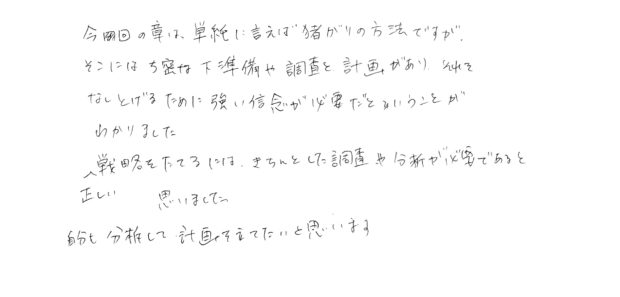 今回の章は、単純に言えば猪がりの方法ですが、
そこにはち密な下準備や調査と計画があり、それを
なしとげるために強い信念が必要だということが
わかりました
正しい戦略をたてるには、きちんとした調査や分析が必要であると
思いました。
自分も分析して計画を立てたいと思います